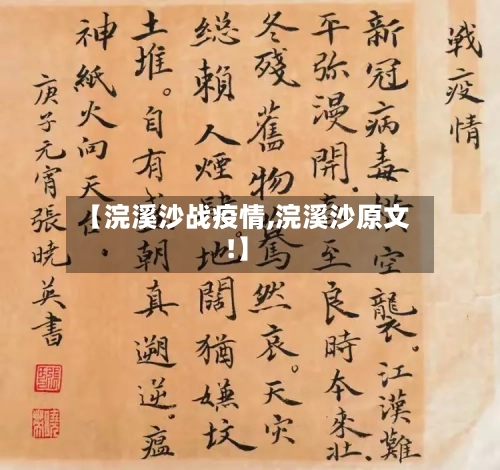 戰疫情
新冠病毒 空襲。江漢難
平弥漫開。 至良時本來壯
冬殘舊物驀然哀。天灾
総賴人煙 地闊猶嫌坟
土堆。自有 朝真遡逆。瘟
神紙火向天
庚子元宵張曉英書
【浣溪沙战疫情,浣溪沙原文
!】